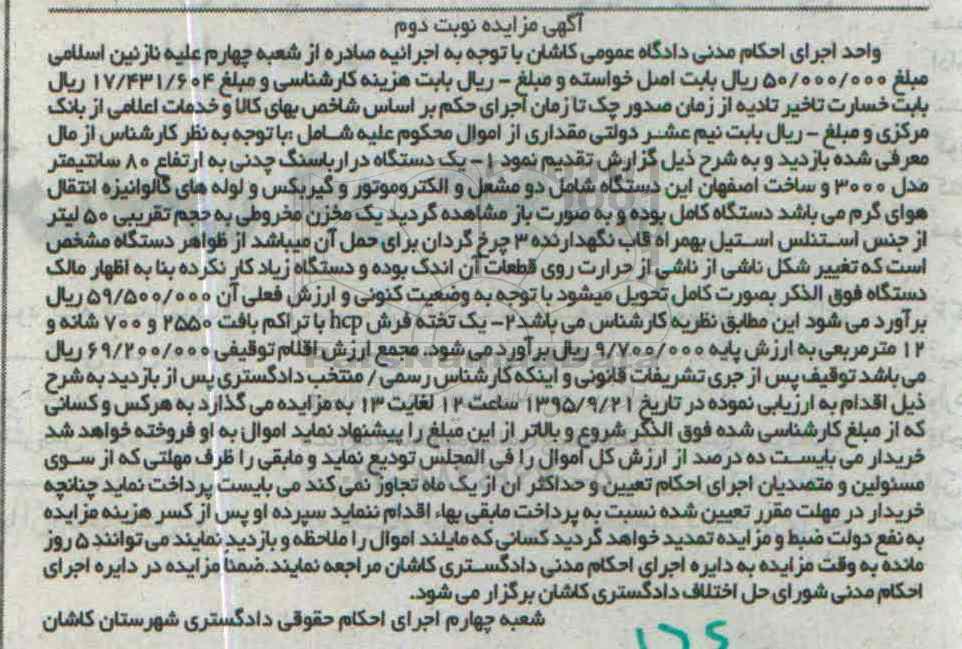 آگهی مزایده نوبت دوم
واحد اجرای احکام مدنی دادگاه عمومی کاشان با توجه به اجرائیه صادره از شعبه چهارم علیه نازنین اسلامی
مبلغ ۵۰/۰۰۰/۰۰۰ ریال بابت اصل خواسته و مبلغ – ریال بابت هزینه کارشناسی و مبلغ ۱۷/۴۳۱/۶۰۴ ریال
بابت خسارت تاخیر تادیه از زمان صدور چک تا زمان اجرای حکم بر اساس شاخص بهای کالا و خدمات اعلامی از بانک
مرکزی و مبلغ – ریال بابت نیم عشر دولتی مقداری از اموال محکوم علیه شامل :با توجه به نظر کارشناس از مال
معرفی شده بازدید و به شرح ذیل گزارش تقدیم نمود ۱- یک دستگاه دراریاسنگ چدنی به ارتفاع ۸۰ سانتیمتر
مدل ۳۰۰۰ و ساخت اصفهان این دستگاه شامل دو مشعل و الکتروموتور و گیربکس و لوله های گالوانیزه انتقال
هوای گرم می باشد دستگاه کامل بوده و به صورت باز مشاهده گردید یک مخزن مخروطی به حجم تقریبی ۵۰ لیتر
از جنس استنلس استیل بهمراه قاب نگهدارنده ۳ چرخ گردان برای حمل آن میباشد از ظواهر دستگاه مشخص
است که تغییر شکل ناشی از ناشی از حرارت روی قطعات آن اندک بوده و دستگاه زیاد کار نکرده بنا به اظهار مالک
دستگاه فوق الذکر بصورت کامل تحویل میشود با توجه به وضعیت کنونی و ارزش فعلی آن ۵۹/۵۰۰/۰۰۰ ریال
برآورد می شود این مطابق نظریه کارشناس می باشد۲- یک تخته فرش hcp با تراکم بافت ۲۵۵۰ و ۷۰۰ شانه و
۱۲ مترمربعی به ارزش پایه ۹/۷۰۰/۰۰۰ ریال برآورد می شود. مجمع ارزش اقلام توقیفی ۶۹/۲۰۰/۰۰۰ ریال
می باشد توقیف پس از جری تشریفات قانونی و اینکه کارشناس رسمی / منتخب دادگستری پس از بازدید به شرح
ذیل اقدام به ارزیابی نموده در تاریخ ۱۳۹۵/۹/۲۱ ساعت ۱۲ لغایت ۱۳ به مزایده می گذارد به هرکس و کسانی
که از مبلغ کارشناسی شده فوق الذکر شروع و بالاتر از این مبلغ را پیشنهاد نماید اموال به او فروخته خواهد شد
خریدار می بایست ده درصد از ارزش کل اموال را فی المجلس تودیع نماید و مابقی را ظرف مهلتی که از سوی
مسئولین و متصدیان اجرای احکام تعیین و حداکثر ان از یک ماه تجاوز نمی کند می بایست پرداخت نماید چنانچه
خریدار در مهلت مقرر تعیین شده نسبت به پرداخت مابقی بهاء اقدام ننماید سپرده او پس از کسر هزینه مزایده
به نفع دولت ضبط و مزایده تمدید خواهد گردید کسانی که مایلند اموال را ملاحظه و بازدید نمایند می توانند ۵ روز
مانده به وقت مزایده به دایره اجرای احکام مدنی دادگستری کاشان مراجعه نمایند.ضمنا مزایده در دایره اجرای
احکام مدنی شورای حل اختلاف دادگستری کاشان برگزار می شود.
شعبه چهارم اجرای احکام حقوقی دادگستری شهرستان کاشان